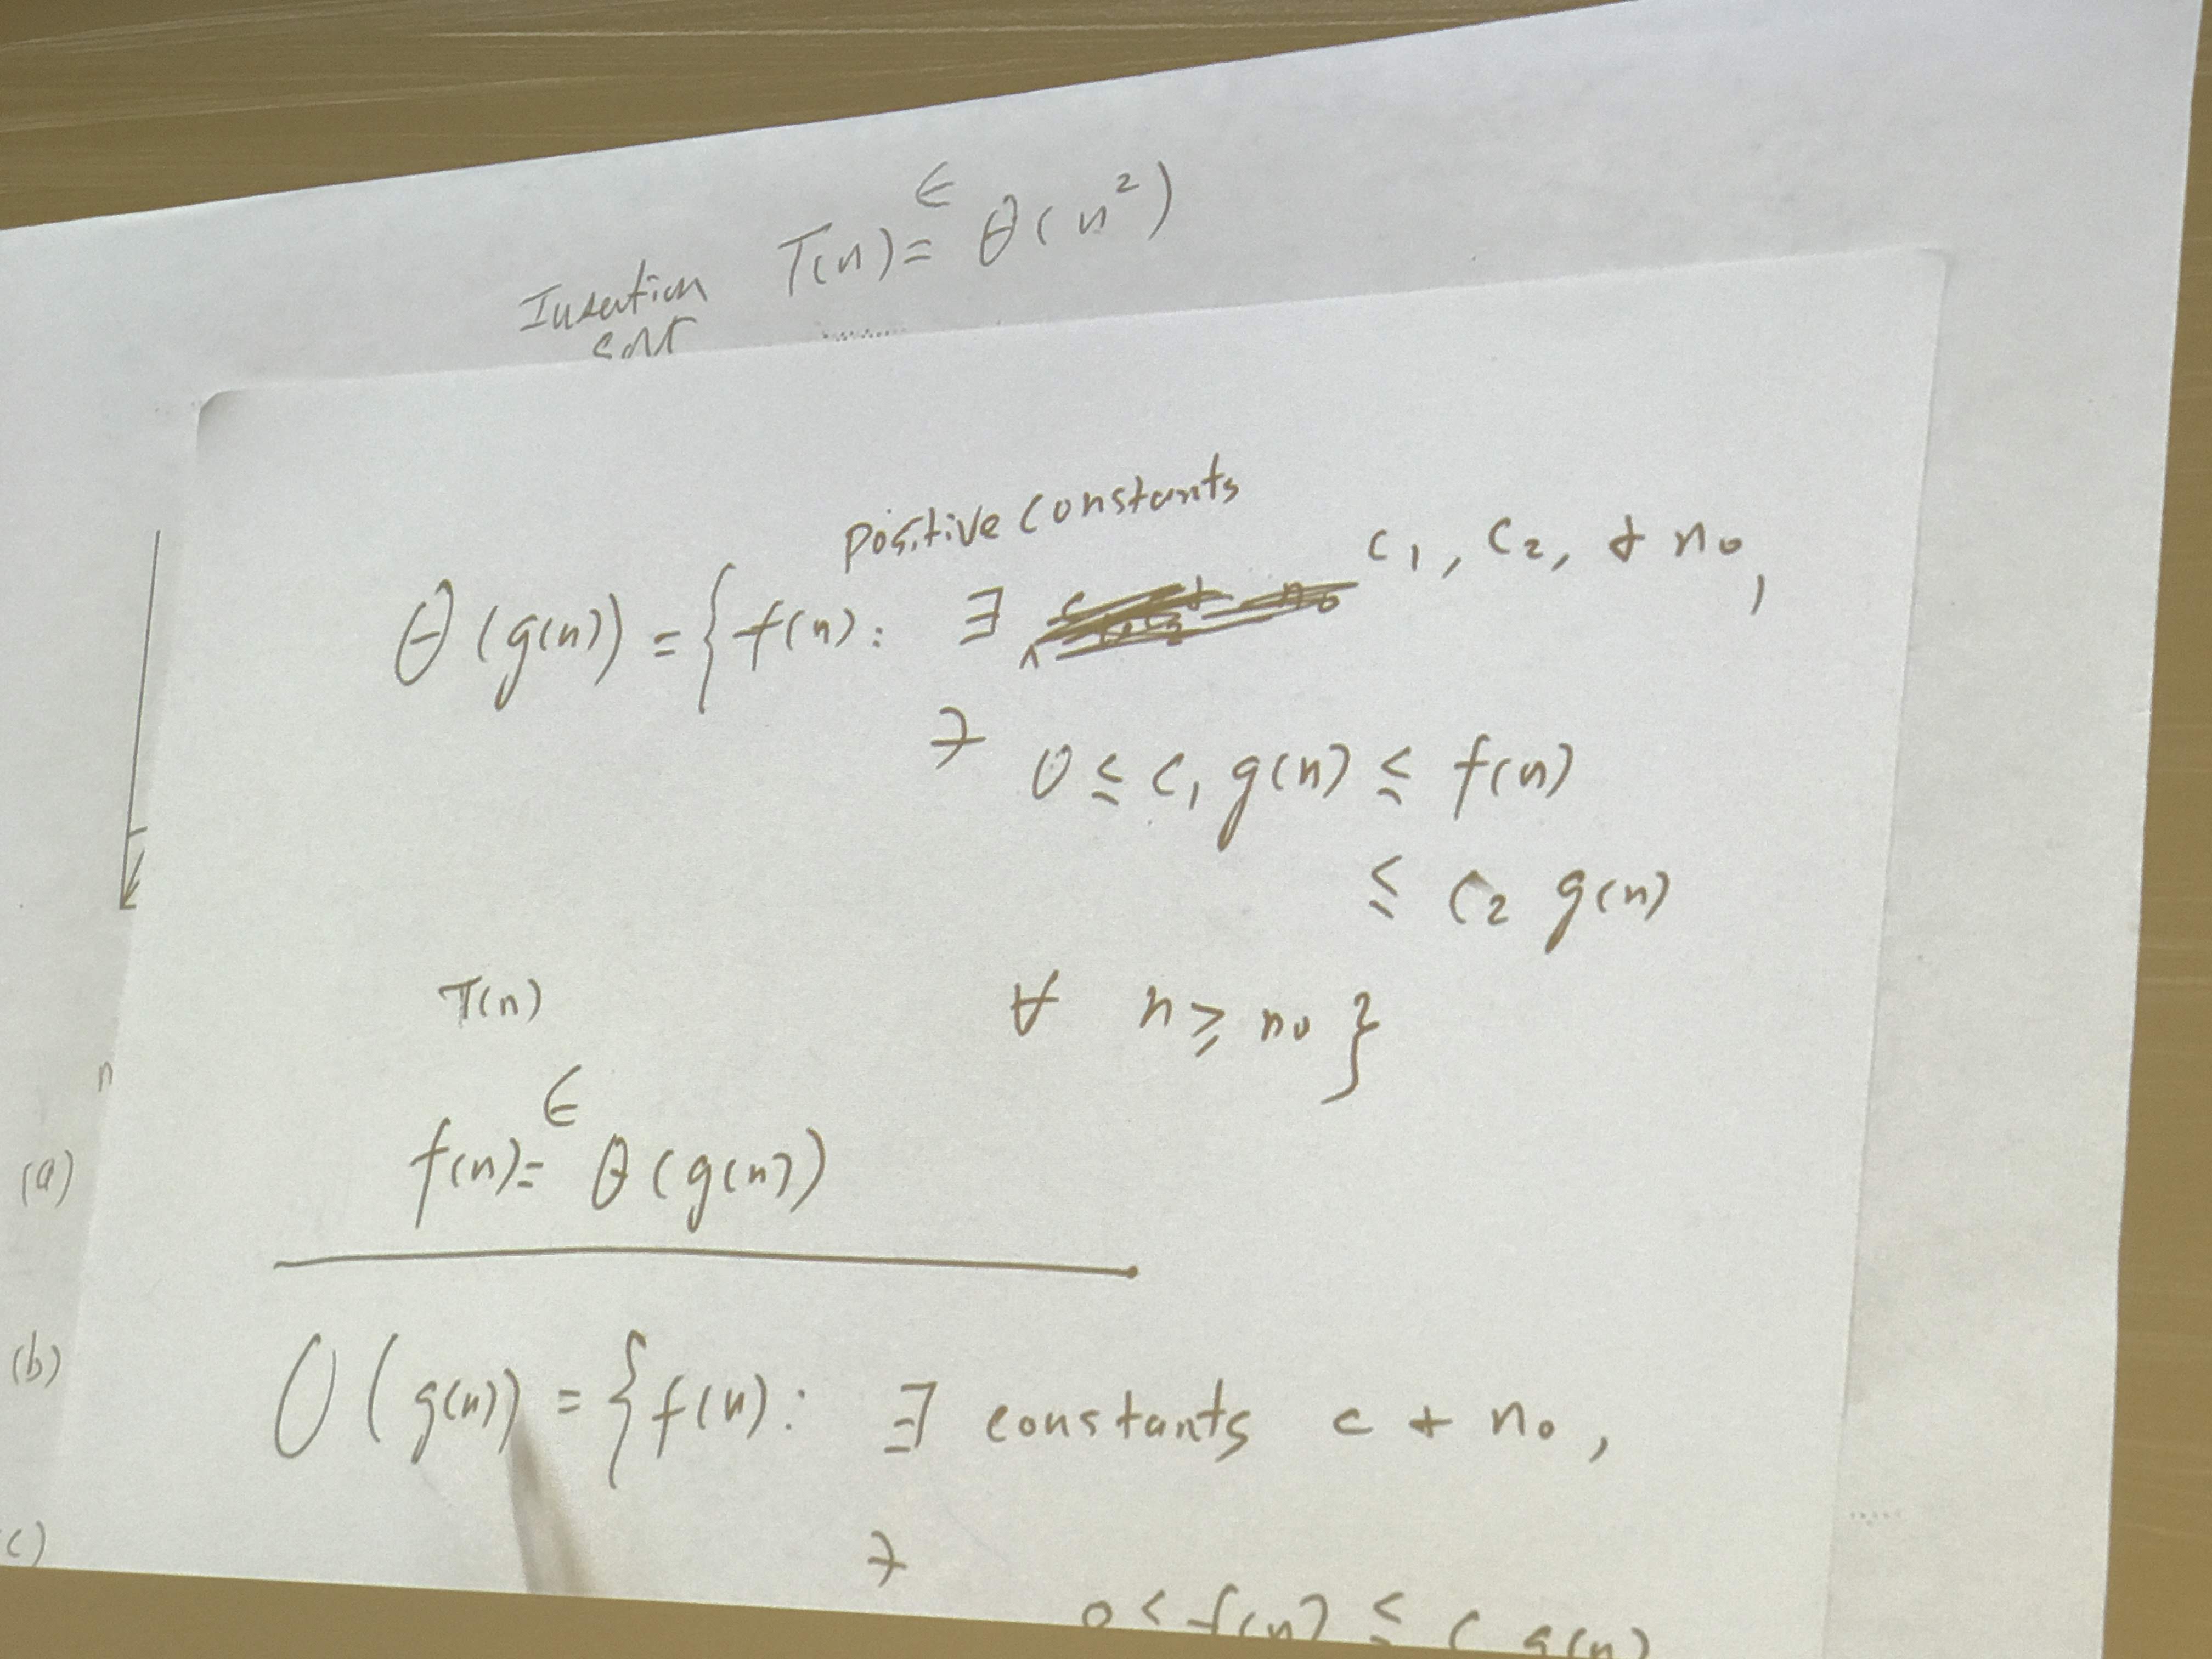 Insertion T(n) = ∈ Θ(n²)
sort
positive constants
Θ(g(n)) = { f(n): ∃ c₁, c₂, & n₀,
∋ 0 ≤ c₁ g(n) ≤ f(n)
≤ c₂ g(n)
T(n) ∀ n ≥ n₀ }
∈
f(n) = Θ(g(n))
n
(a)
(b)
O(g(n)) = { f(n): ∃ constants c & n₀,
c)
∋
0 ≤ f(n) ≤ c g(n)